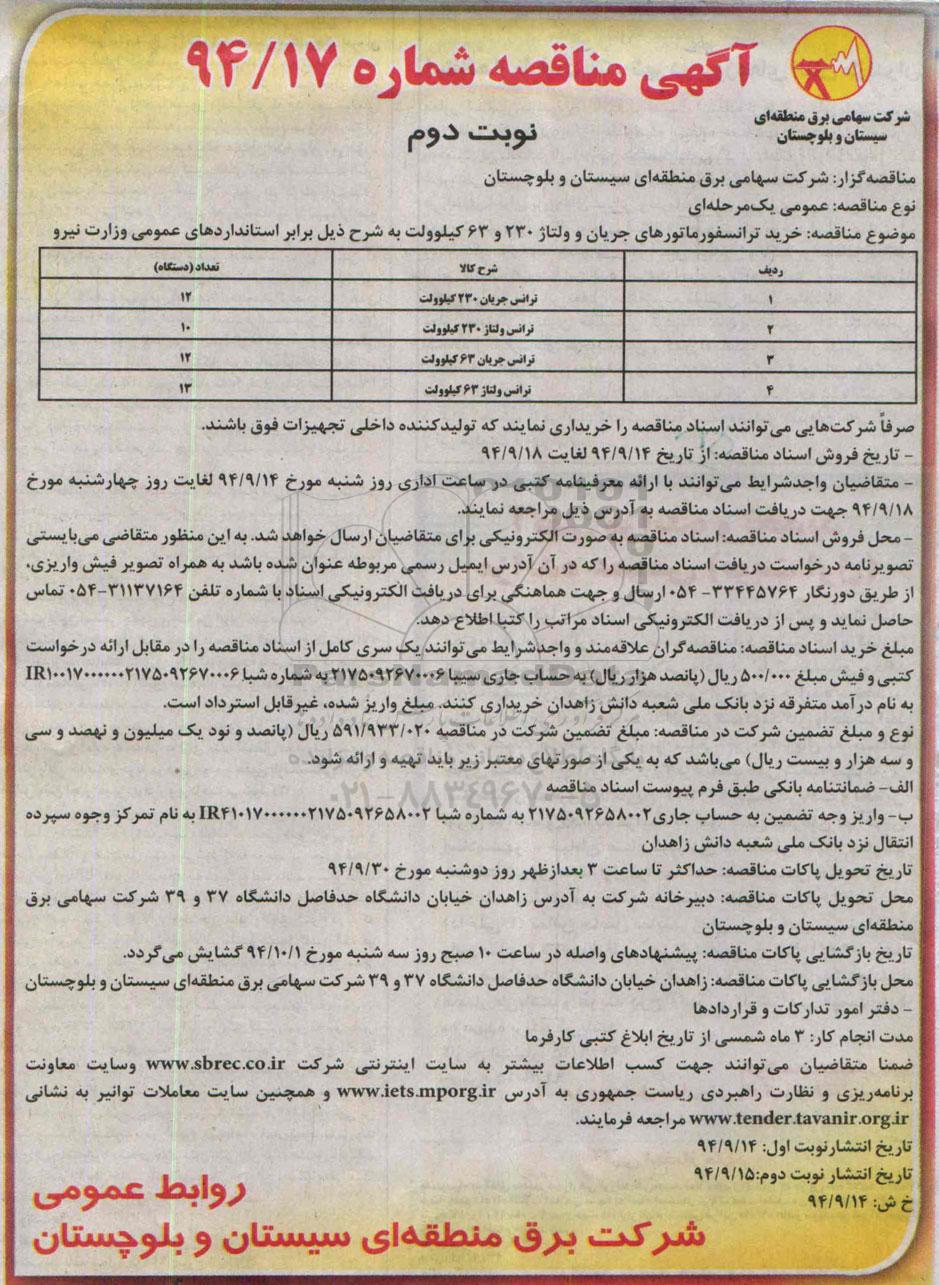 آگهی مناقصه شماره ۹۴/۱۷
شرکت سهامی برق منطقه‌ای
سیستان و بلوچستان
نوبت دوم
مناقصه‌گزار: شرکت سهامی برق منطقه‌ای سیستان و بلوچستان
نوع مناقصه: عمومی یک‌مرحله‌ای
موضوع مناقصه: خرید ترانسفورماتورهای جریان و ولتاژ ۲۳۰ و ۶۳ کیلوولت به شرح ذیل برابر استانداردهای عمومی وزارت نیرو
ردیف شرح کالا تعداد (دستگاه)
۱ ترانس جریان ۲۳۰ کیلوولت ۱۲
۲ ترانس ولتاژ ۲۳۰ کیلوولت ۱۰
۳ ترانس جریان ۶۳ کیلوولت ۱۲
۴ ترانس ولتاژ ۶۳ کیلوولت ۱۳
صرفاً شرکت‌هایی می‌توانند اسناد مناقصه را خریداری نمایند که تولیدکننده داخلی تجهیزات فوق باشند.
- تاریخ فروش اسناد مناقصه: از تاریخ ۹۴/۹/۱۴ لغایت ۹۴/۹/۱۸
- متقاضیان واجدشرایط می‌توانند با ارائه معرفینامه کتبی در ساعت اداری روز شنبه مورخ ۹۴/۹/۱۴ لغایت روز چهارشنبه مورخ
۹۴/۹/۱۸ جهت دریافت اسناد مناقصه به آدرس ذیل مراجعه نمایند.
- محل فروش اسناد مناقصه: اسناد مناقصه به صورت الکترونیکی برای متقاضیان ارسال خواهد شد. به این منظور متقاضی می‌بایستی
تصویرنامه درخواست دریافت اسناد مناقصه را که در آن آدرس ایمیل رسمی مربوطه عنوان شده باشد به همراه تصویر فیش واریزی،
از طریق دورنگار ۳۳۴۴۵۷۶۴-۰۵۴ ارسال و جهت هماهنگی برای دریافت الکترونیکی اسناد با شماره تلفن ۳۱۱۳۷۱۶۴-۰۵۴ تماس
حاصل نماید و پس از دریافت الکترونیکی اسناد مراتب را کتبا اطلاع دهد.
مبلغ خرید اسناد مناقصه: مناقصه‌گران علاقه‌مند و واجدشرایط می‌توانند یک سری کامل از اسناد مناقصه را در مقابل ارائه درخواست
کتبی و فیش مبلغ ۵۰۰/۰۰۰ ریال (پانصد هزار ریال) به حساب جاری سیبا ۲۱۷۵۰۹۲۶۷۰۰۰۶ به شماره شبا IR۱۰۰۱۷۰۰۰۰۰۰۰۲۱۷۵۰۹۲۶۷۰۰۰۶
به نام درآمد متفرقه نزد بانک ملی شعبه دانش زاهدان خریداری کنند. مبلغ واریز شده، غیرقابل استرداد است.
نوع و مبلغ تضمین شرکت در مناقصه: مبلغ تضمین شرکت در مناقصه ۵۹۱/۹۳۳/۰۲۰ ریال (پانصد و نود یک میلیون و نهصد و سی
و سه هزار و بیست ریال) می‌باشد که به یکی از صورتهای معتبر زیر باید تهیه و ارائه شود.
الف- ضمانتنامه بانکی طبق فرم پیوست اسناد مناقصه
ب- واریز وجه تضمین به حساب جاری ۲۱۷۵۰۹۲۶۵۸۰۰۲ به شماره شبا IR۴۱۰۱۷۰۰۰۰۰۰۰۲۱۷۵۰۹۲۶۵۸۰۰۲ به نام تمرکز وجوه سپرده
انتقال نزد بانک ملی شعبه دانش زاهدان
تاریخ تحویل پاکات مناقصه: حداکثر تا ساعت ۳ بعدازظهر روز دوشنبه مورخ ۹۴/۹/۳۰
محل تحویل پاکات مناقصه: دبیرخانه شرکت به آدرس زاهدان خیابان دانشگاه حدفاصل دانشگاه ۳۷ و ۳۹ شرکت سهامی برق
منطقه‌ای سیستان و بلوچستان
تاریخ بازگشایی پاکات مناقصه: پیشنهادهای واصله در ساعت ۱۰ صبح روز سه شنبه مورخ ۹۴/۱۰/۱ گشایش می‌گردد.
محل بازگشایی پاکات مناقصه: زاهدان خیابان دانشگاه حدفاصل دانشگاه ۳۷ و ۳۹ شرکت سهامی برق منطقه‌ای سیستان و بلوچستان
- دفتر امور تدارکات و قراردادها
مدت انجام کار: ۳ ماه شمسی از تاریخ ابلاغ کتبی کارفرما
ضمنا متقاضیان می‌توانند جهت کسب اطلاعات بیشتر به سایت اینترنتی شرکت www.sbrec.co.ir وسایت معاونت
برنامه‌ریزی و نظارت راهبردی ریاست جمهوری به آدرس www.iets.mporg.ir و همچنین سایت معاملات توانیر به نشانی
www.tender.tavanir.org.ir مراجعه فرمایند.
تاریخ انتشارنوبت اول: ۹۴/۹/۱۴
تاریخ انتشار نوبت دوم:۹۴/۹/۱۵
خ ش: ۹۴/۹/۱۴
روابط عمومی
شرکت برق منطقه‌ای سیستان و بلوچستان